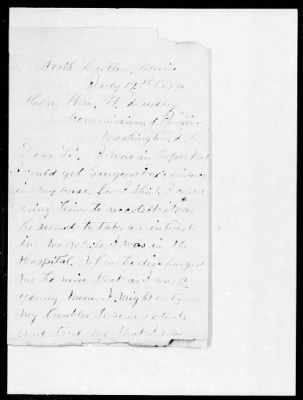 North Dutton, Maine
July 19th 1884
Hon. Wm. W. Dudley
Commissioner of Pension
Washington, D.C.
Dear Sir. I was in hopes that
I could get Surgeon's evidence
in my case for I think I could
bring him to recollect it as
he seemed to take an interest
in me while I was in the
Hospital. When he discharged
me he said that as I was a
young man I might outgrow
my troubles to some extent
and told me that I